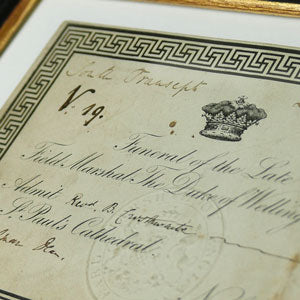 South Transept
V. 19.
Funeral of the Late
Field Marshal The Duke of Welling
Admit Revd B.
St. Paul's Cathedral